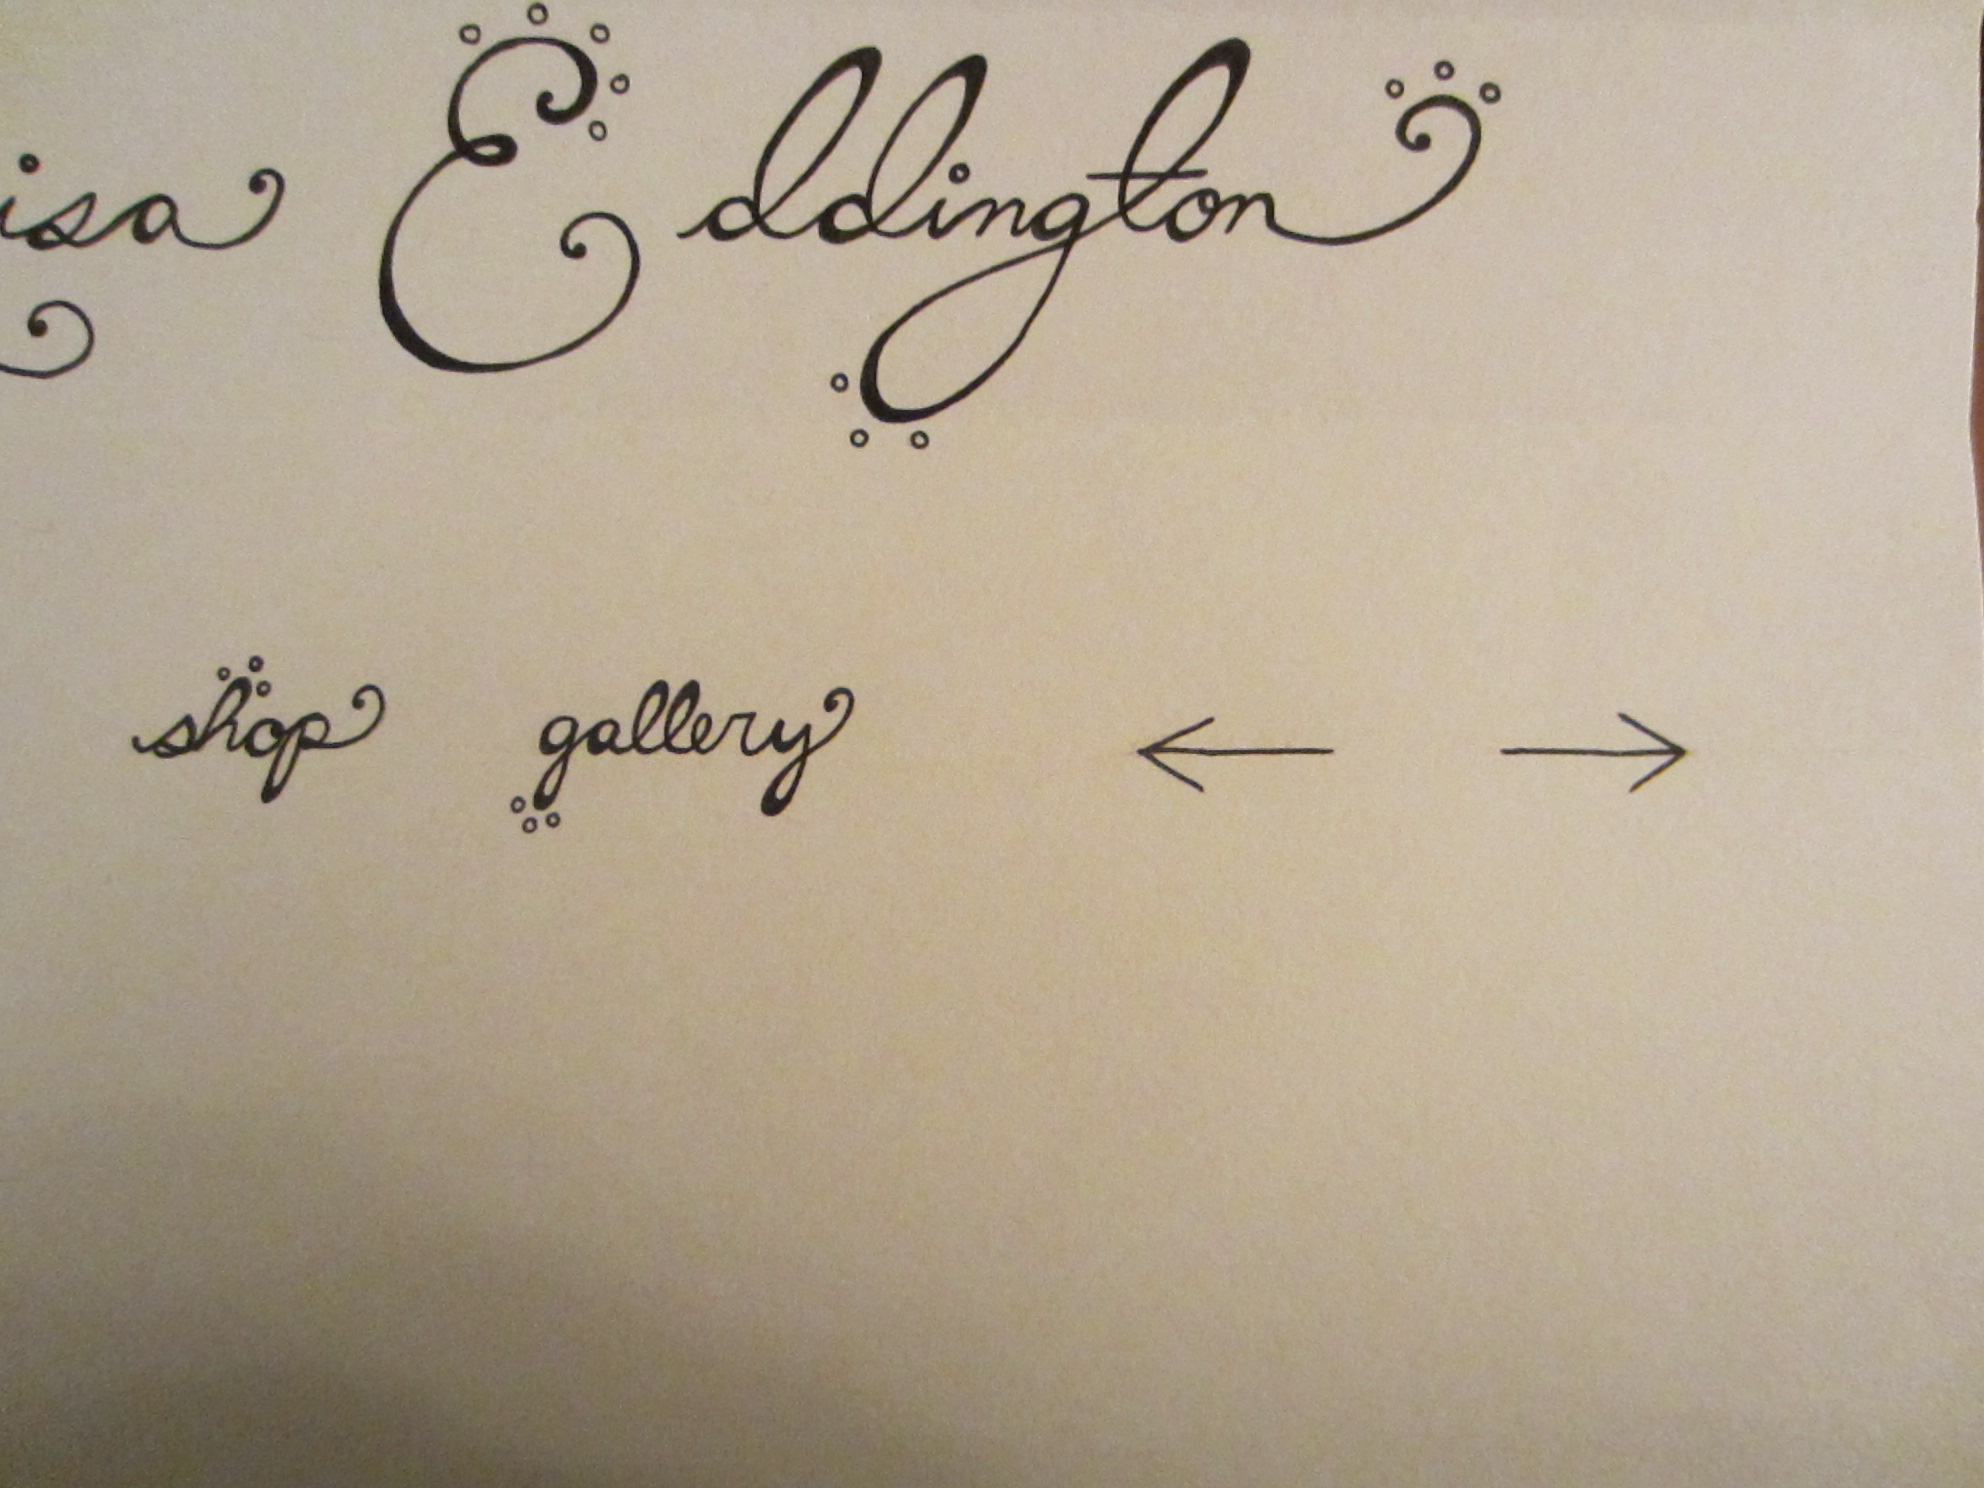 isa Eddington
shop gallery ← →